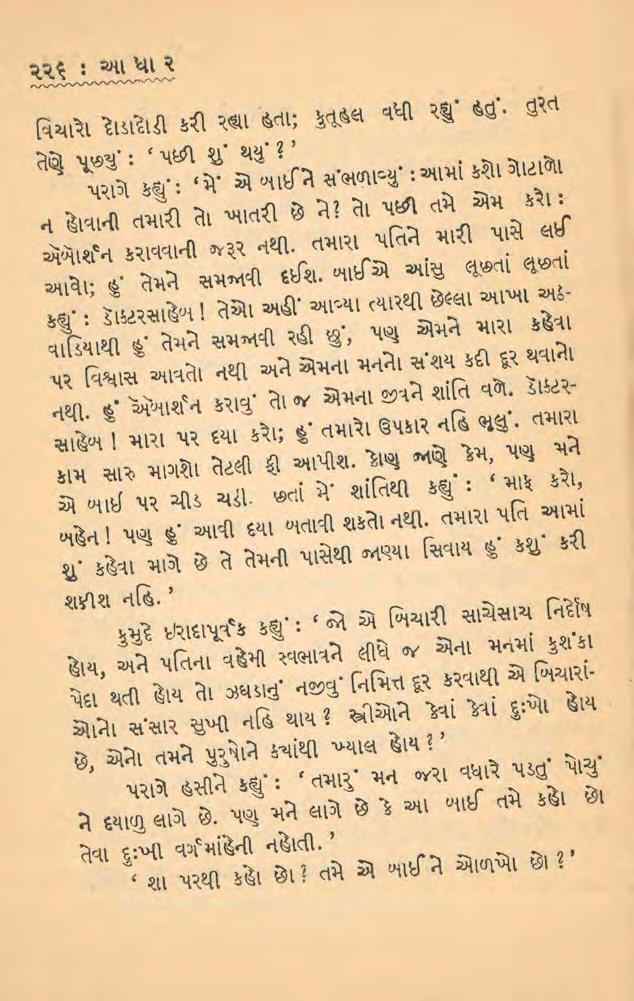 ૨૨૬ : આ ધા ર
વિચારો દોડાદોડી કરી રહ્યા હતા; કુતૂહલ વધી રહ્યું હતું. તુરત
તેણે પૂછ્યું : ‘ પછી શું થયું ? ’
પરાગે કહ્યું : ‘ મેં એ બાઈને સંભળાવ્યું : આમાં કશો ગોટાળો
ન હોવાની તમારી તો ખાતરી છે ને? તો પછી તમે એમ કરો :
ઍબૉર્શન કરાવવાની જરૂર નથી. તમારા પતિને મારી પાસે લઈ
આવો; હું તેમને સમજાવી દઈશ. બાઈએ આંસુ લૂછતાં લૂછતાં
કહ્યું : ડૉક્ટરસાહેબ ! તેઓ અહીં આવ્યા ત્યારથી છેલ્લા આખા અઠ-
વાડિયાથી હું તેમને સમજાવી રહી છું, પણ એમને મારા કહેવા
પર વિશ્વાસ આવતો નથી અને એમના મનનો સંશય કદી દૂર થવાનો
નથી. હું ઍબૉર્શન કરાવું તો જ એમના જીવને શાંતિ વળે. ડૉક્ટર-
સાહેબ ! મારા પર દયા કરો; હું તમારો ઉપકાર નહિ ભૂલું. તમારા
કામ સારુ માગશો તેટલી ફી આપીશ. કોણ જાણે કેમ, પણ મને
એ બાઈ પર ચીડ ચડી. છતાં મેં શાંતિથી કહ્યું : ‘ માફ કરો,
બહેન ! પણ હું આવી દયા બતાવી શકતો નથી. તમારા પતિ આમાં
શું કહેવા માગે છે તે તેમની પાસેથી જાણ્યા સિવાય હું કશું કરી
શકીશ નહિ. ’
કુમુદે ઇરાદાપૂર્વક કહ્યું : ‘ જો એ બિચારી સાચેસાચ નિર્દોષ
હોય, અને પતિના વહેમી સ્વભાવને લીધે જ એના મનમાં કુશંકા
પેદા થતી હોય તો ઝઘડાનું નજીવું નિમિત્ત દૂર કરવાથી એ બિચારાં-
ઓનો સંસાર સુખી નહિ થાય? સ્ત્રીઓને કેવાં કેવાં દુઃખો હોય
છે, એનો તમને પુરુષોને ક્યાંથી ખ્યાલ હોય ? ’
પરાગે હસીને કહ્યું : ‘ તમારું મન જરા વધારે પડતું પોચું
ને દયાળુ લાગે છે. પણ મને લાગે છે કે આ બાઈ તમે કહો છો
તેવા દુઃખી વર્ગમાંહેની નહોતી. ’
‘ શા પરથી કહો છો ? તમે એ બાઈને ઓળખો છો ? ’